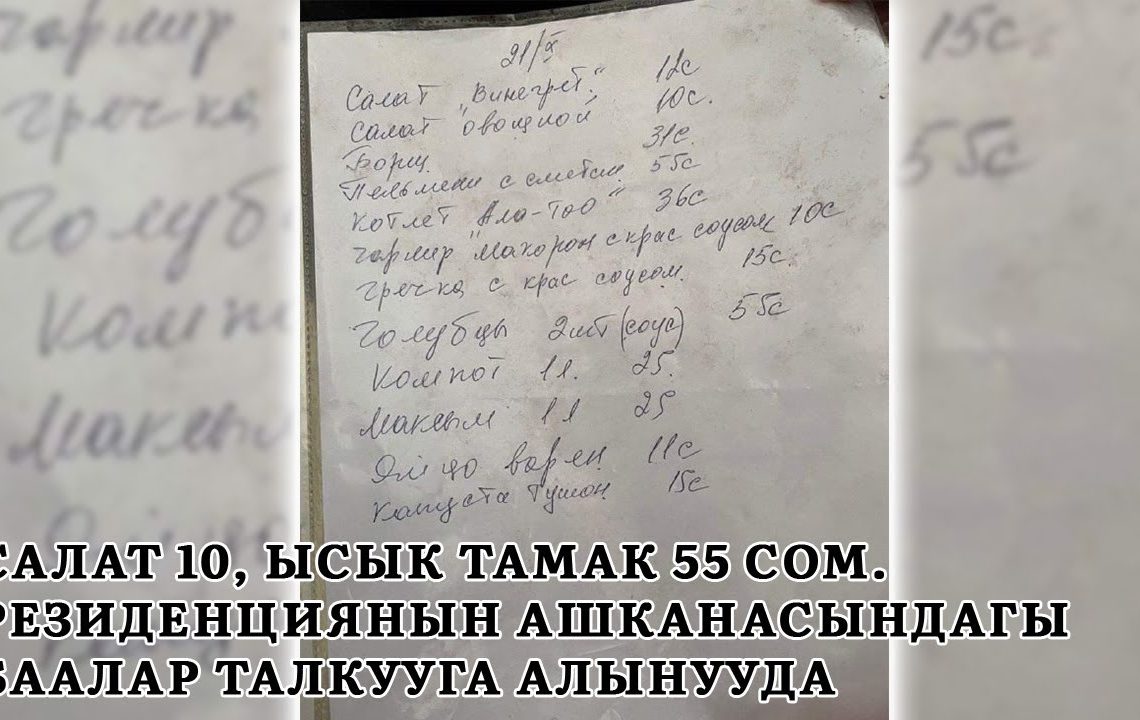 21/X
Салат "Винегрет" 12с
Салат "овощной" 10с.
Борщ 31с.
Пельмени с сметан. 55с
Котлет "Ала-Тоо" 36с
Гарнир "Макорон с крас соусом 10с
гречка с крас соусом. 15с.
Голубцы 2шт (соус) 55с
Компот 1л. 25.
Максым 1л 25
Яйцо варен 11с
Капуста Тушон. 15с
САЛАТ 10, ЫСЫК ТАМАК 55 СОМ.
РЕЗИДЕНЦИЯНЫН АШКАНАСЫНДАГЫ
БААЛАР ТАЛКУУГА АЛЫНУУДА